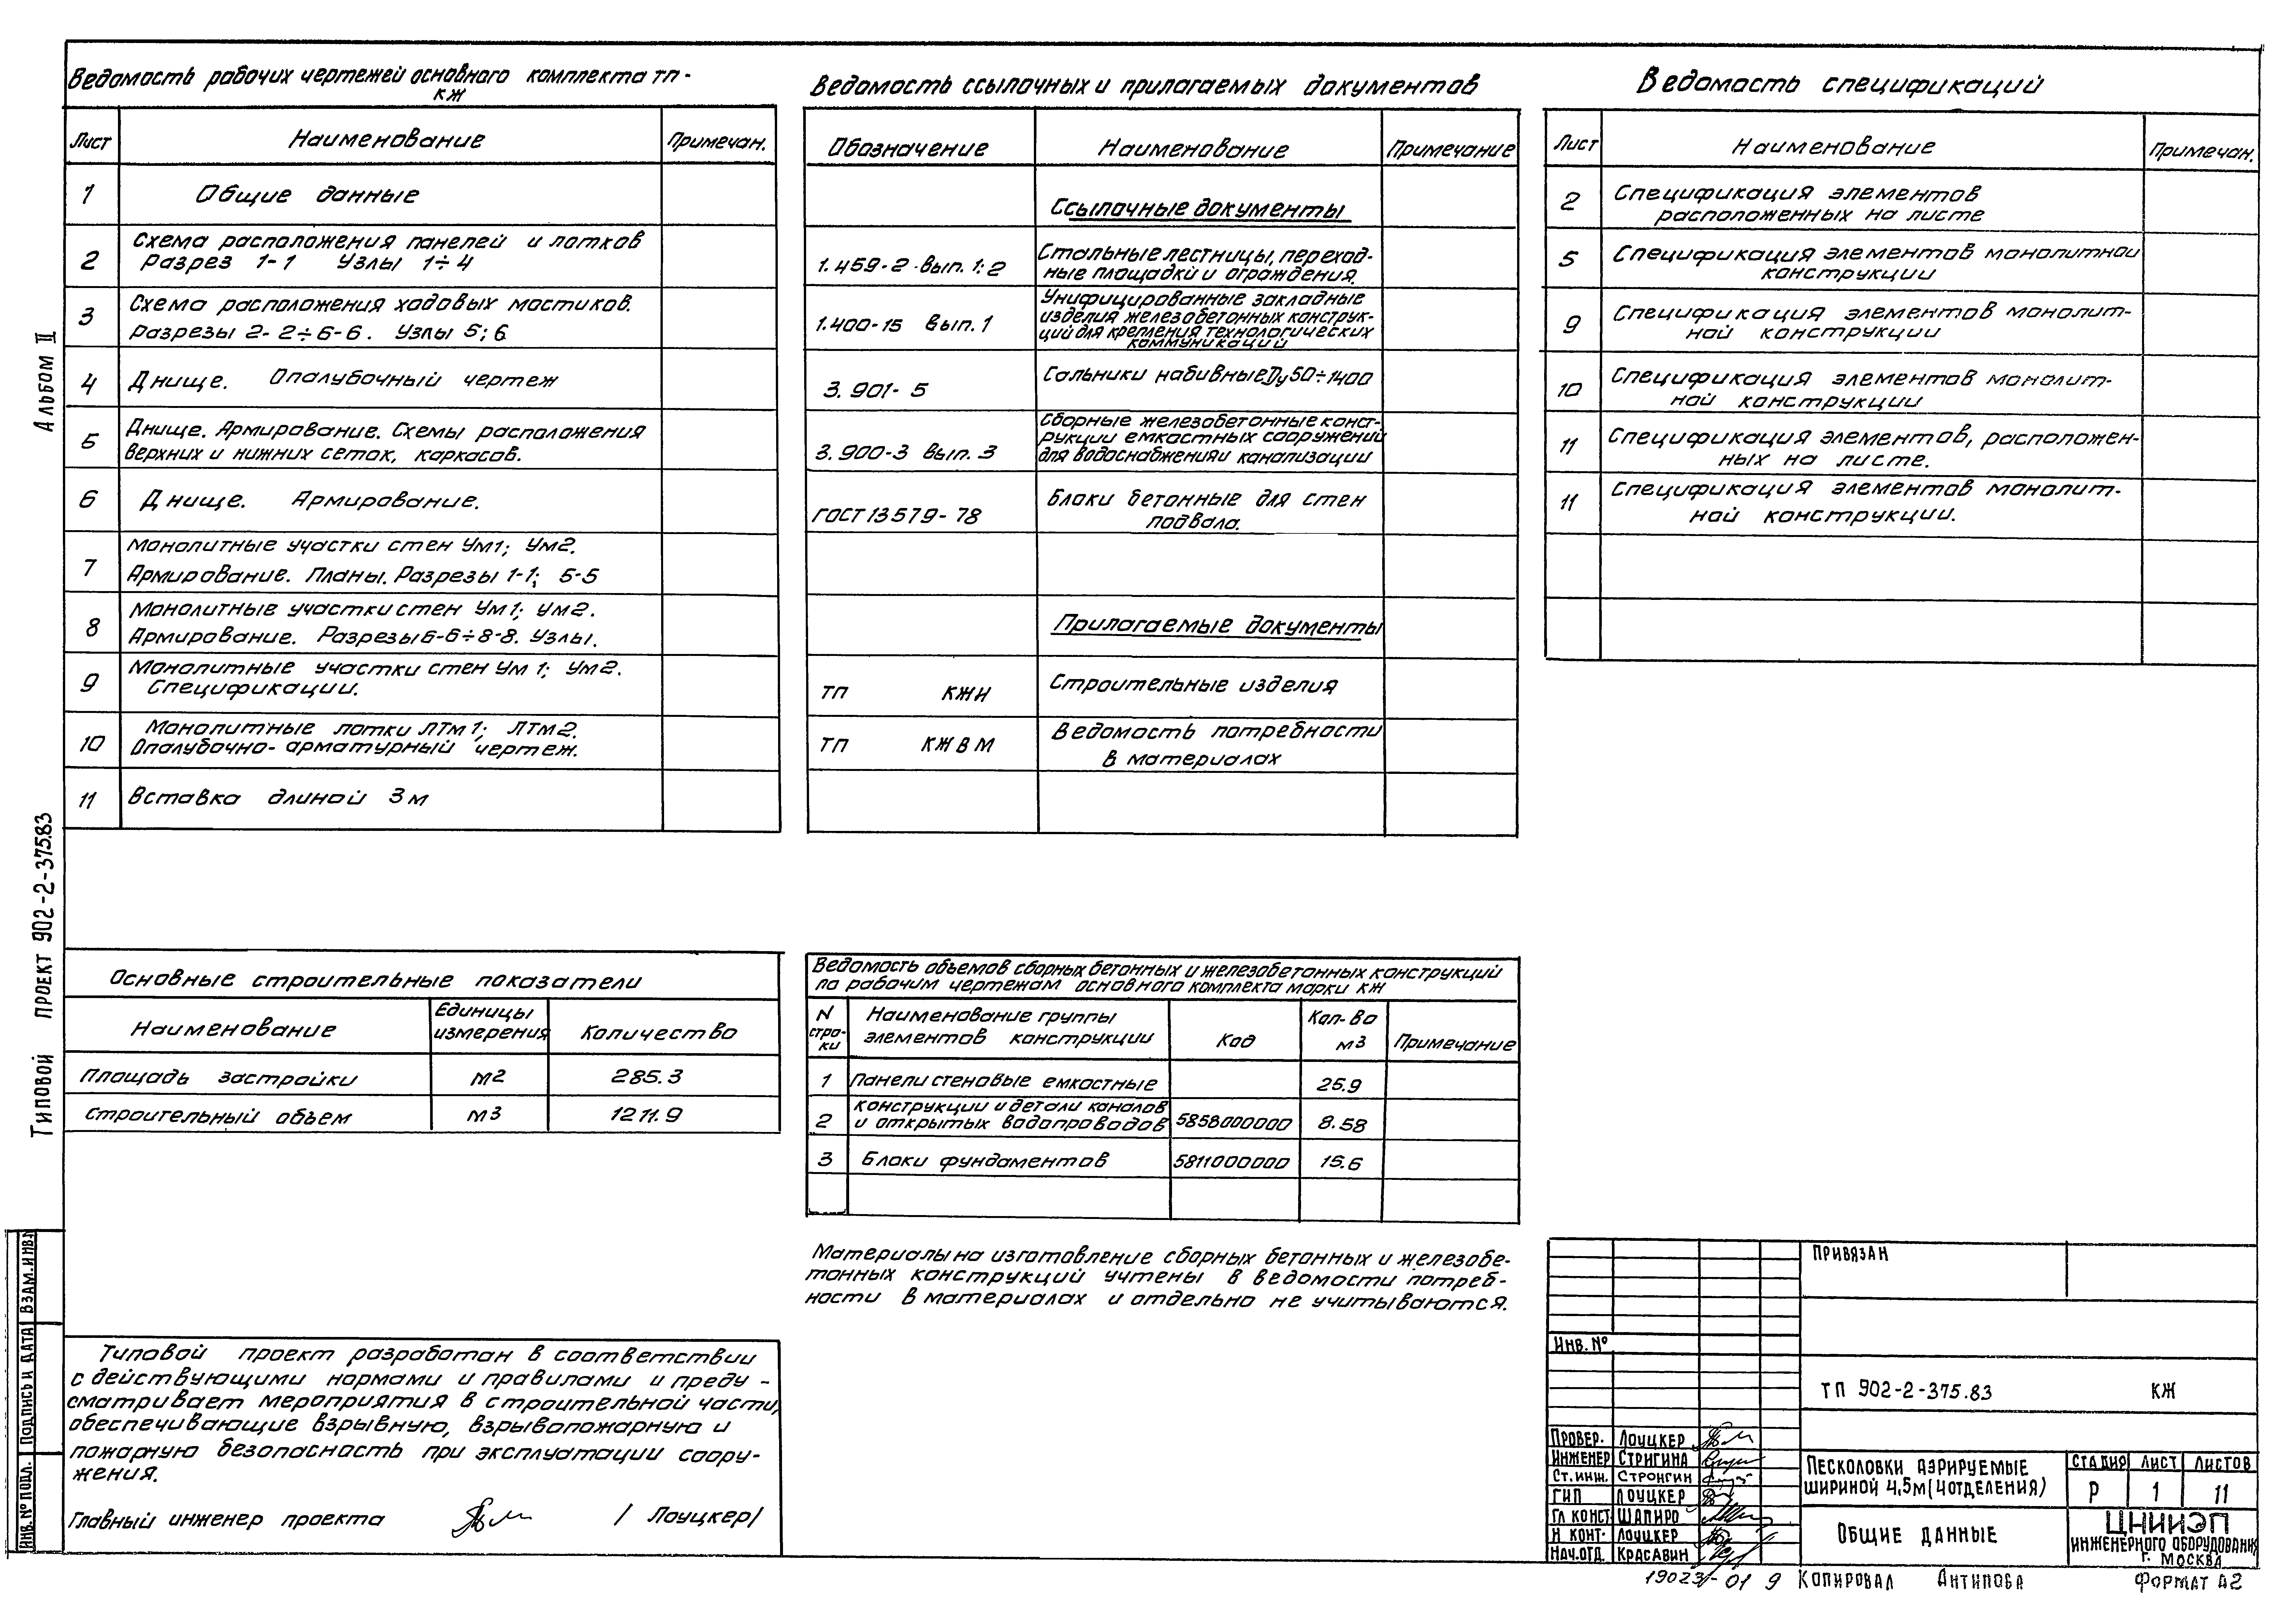 Ведомость рабочих чертежей основного комплекта ТП -
КЖ
Лист
Наименование
Примечан.
1
Общие данные
2
Схема расположения панелей и лотков
Разрез 1-1 Узлы 1÷4
3
Схема расположения ходовых мостиков.
Разрезы 2-2÷6-6. Узлы 5; 6
4
Днище. Опалубочный чертеж
5
Днище. Армирование. Схемы расположения
верхних и нижних сеток, каркасов.
6
Днище. Армирование.
7
Монолитные участки стен Ум1; Ум2.
Армирование. Планы. Разрезы 1-1; 5-5
8
Монолитные участки стен Ум1; Ум2.
Армирование. Разрезы 6-6÷8-8. Узлы.
9
Монолитные участки стен Ум 1; Ум2.
Спецификации.
10
Монолитные лотки ЛТм1; ЛТм2.
Опалубочно-арматурный чертеж.
11
Вставка длиной 3м
Ведомость ссылочных и прилагаемых документов
Обозначение
Наименование
Примечание
Ссылочные документы
1.459-2 вып. 1; 2
Стальные лестницы, переход-
ные площадки и ограждения.
1.400-15 вып. 1
Унифицированные закладные
изделия железобетонных конструк-
ций для крепления технологических
коммуникаций
3.901-5
Сальники набивные Ду 50÷1400
3.900-3 вып. 3
Сборные железобетонные конст-
рукции емкостных сооружений
для водоснабжения и канализации
ГОСТ 13579-78
Блоки бетонные для стен
подвала.
Прилагаемые документы
ТП КЖИ
Строительные изделия
ТП КЖВМ
Ведомость потребности
в материалах
Ведомость спецификаций
Лист
Наименование
Примечан.
2
Спецификация элементов
расположенных на листе
5
Спецификация элементов монолитной
конструкции
9
Спецификация элементов монолит-
ной конструкции
10
Спецификация элементов монолит-
ной конструкции
11
Спецификация элементов, расположен-
ных на листе.
11
Спецификация элементов монолит-
ной конструкции.
Альбом II
Типовой проект 902-2-375.83
Основные строительные показатели
Наименование
Единицы
измерения
Количество
Площадь застройки
м2
285.3
Строительный объем
м3
1211.9
Ведомость объемов сборных бетонных и железобетонных конструкций
по рабочим чертежам основного комплекта марки КЖ
N
стро-
ки
Наименование группы
элементов конструкции
Код
Кол-во
м3
Примечание
1
Панели стеновые емкостные
25.9
2
Конструкции и детали каналов
и открытых водопроводов
5858000000
8.58
3
Блоки фундаментов
5811000000
15.6
Материалы на изготовление сборных бетонных и железобе-
тонных конструкций учтены в ведомости потреб-
ности в материалах и отдельно не учитываются.
Типовой проект разработан в соответствии
с действующими нормами и правилами и преду-
сматривает мероприятия в строительной части,
обеспечивающие взрывную, взрывопожарную и
пожарную безопасность при эксплуатации соору-
жения.
Главный инженер проекта / Лоуцкер/
Инв. № подл.
Подпись и дата
Взам. инв.
Привязан
Инв. №
ТП 902-2-375.83 КЖ
Провер. Лоуцкер
Инженер Стригина
Ст. инж. Стронгин
ГИП Лоуцкер
Гл конст. Шапиро
Н конт. Лоуцкер
Нач. отд. Красавин
Песколовки аэрируемые
шириной 4,5м (4 отделения)
Стадия
Лист
Листов
Р
1
11
Общие данные
ЦНИИЭП
инженерного оборудования
г. Москва
19023-01 9
Копировал Антипова
Формат А2